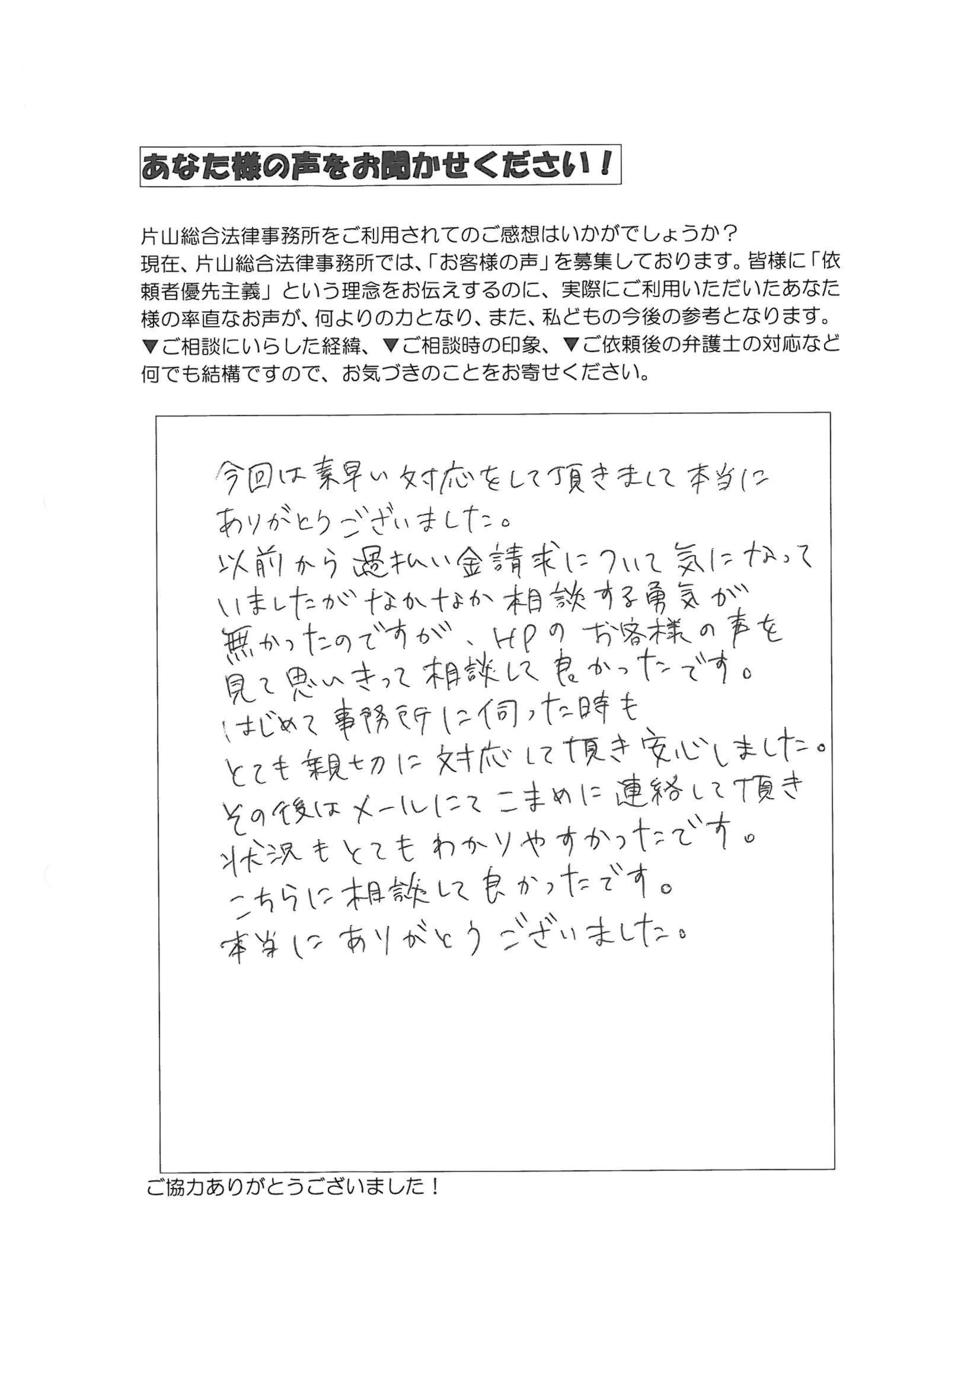 あなた様の声をお聞かせください！
片山総合法律事務所をご利用されてのご感想はいかがでしょうか？
現在、片山総合法律事務所では、「お客様の声」を募集しております。皆様に「依
頼者優先主義」という理念をお伝えするのに、実際にご利用いただいたあなた
様の率直なお声が、何よりの力となり、また、私どもの今後の参考となります。
▼ご相談にいらした経緯、▼ご相談時の印象、▼ご依頼後の弁護士の対応など
何でも結構ですので、お気づきのことをお寄せください。
今回は素早い対応をして頂きまして本当に
ありがとうございました。
以前から過払い金請求について気になって
いましたがなかなか相談する勇気が
無かったのですが、HPのお客様の声を
見て思いきって相談して良かったです。
はじめて事務所に伺った時も
とても親切に対応して頂き安心しました。
その後はメールにてこまめに連絡して頂き
状況もとてもわかりやすかったです。
こちらに相談して良かったです。
本当にありがとうございました。
ご協力ありがとうございました！